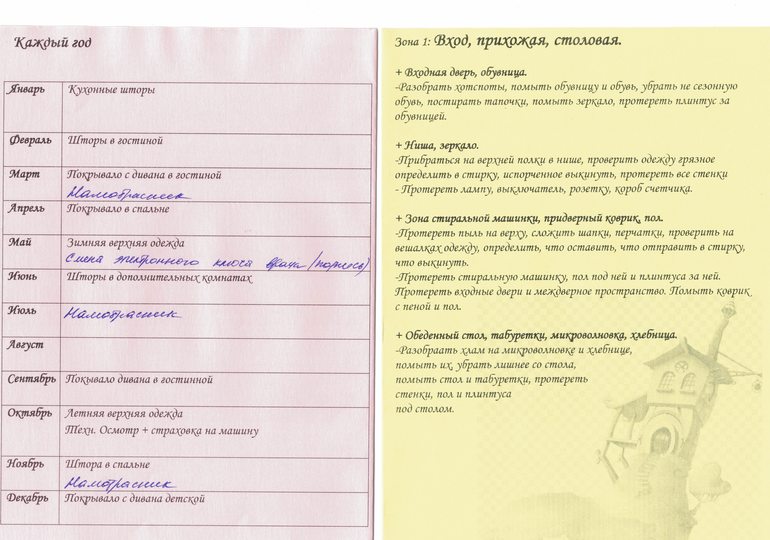 Каждый год
Январь Кухонные шторы
Февраль Шторы в гостиной
Март Покрывало с дивана в гостиной
Наматрасник
Апрель Покрывало в спальне
Май Зимняя верхняя одежда
Смена электронного ключа врача /подпись)
Июнь Шторы в дополнительных комнатах
Июль Наматрасник
Август
Сентябрь Покывало дивана в гостинной
Октябрь Летняя верхняя одежда
Техн. Осмотр + страховка на машину
Ноябрь Штора в спальне
Наматрасник
Декабрь Покрывало с дивана детской
Зона 1: Вход, прихожая, столовая.
+ Входная дверь, обувница.
-Разобрать хотспоты, помыть обувницу и обувь, убрать не сезонную
обувь, постирать тапочки, помыть зеркало, протереть плинтус за
обувницей.
+ Ниша, зеркало.
-Прибраться на верхней полки в нише, проверить одежду грязное
определить в стирку, испорченное выкинуть, протереть все стенки
- Протереть лампу, выключатель, розетку, короб счетчика.
+ Зона стиральной машинки, придверный коврик, пол.
-Протереть пыль на верху, сложить шапки, перчатки, проверить на
вешалках одежду, определить, что оставить, что отправить в стирку,
что выкинуть.
-Протереть стиральную машинку, пол под ней и плинтуса за ней.
Протереть входные двери и междверное пространство. Помыть коврик
с пеной и пол.
+ Обеденный стол, табуретки, микроволновка, хлебница.
-Разобраать хлам на микроволновке и хлебнице,
помыть их, убрать лишнее со стола,
помыть стол и табуретки, протереть
стенки, пол и плинтуса
под столом.